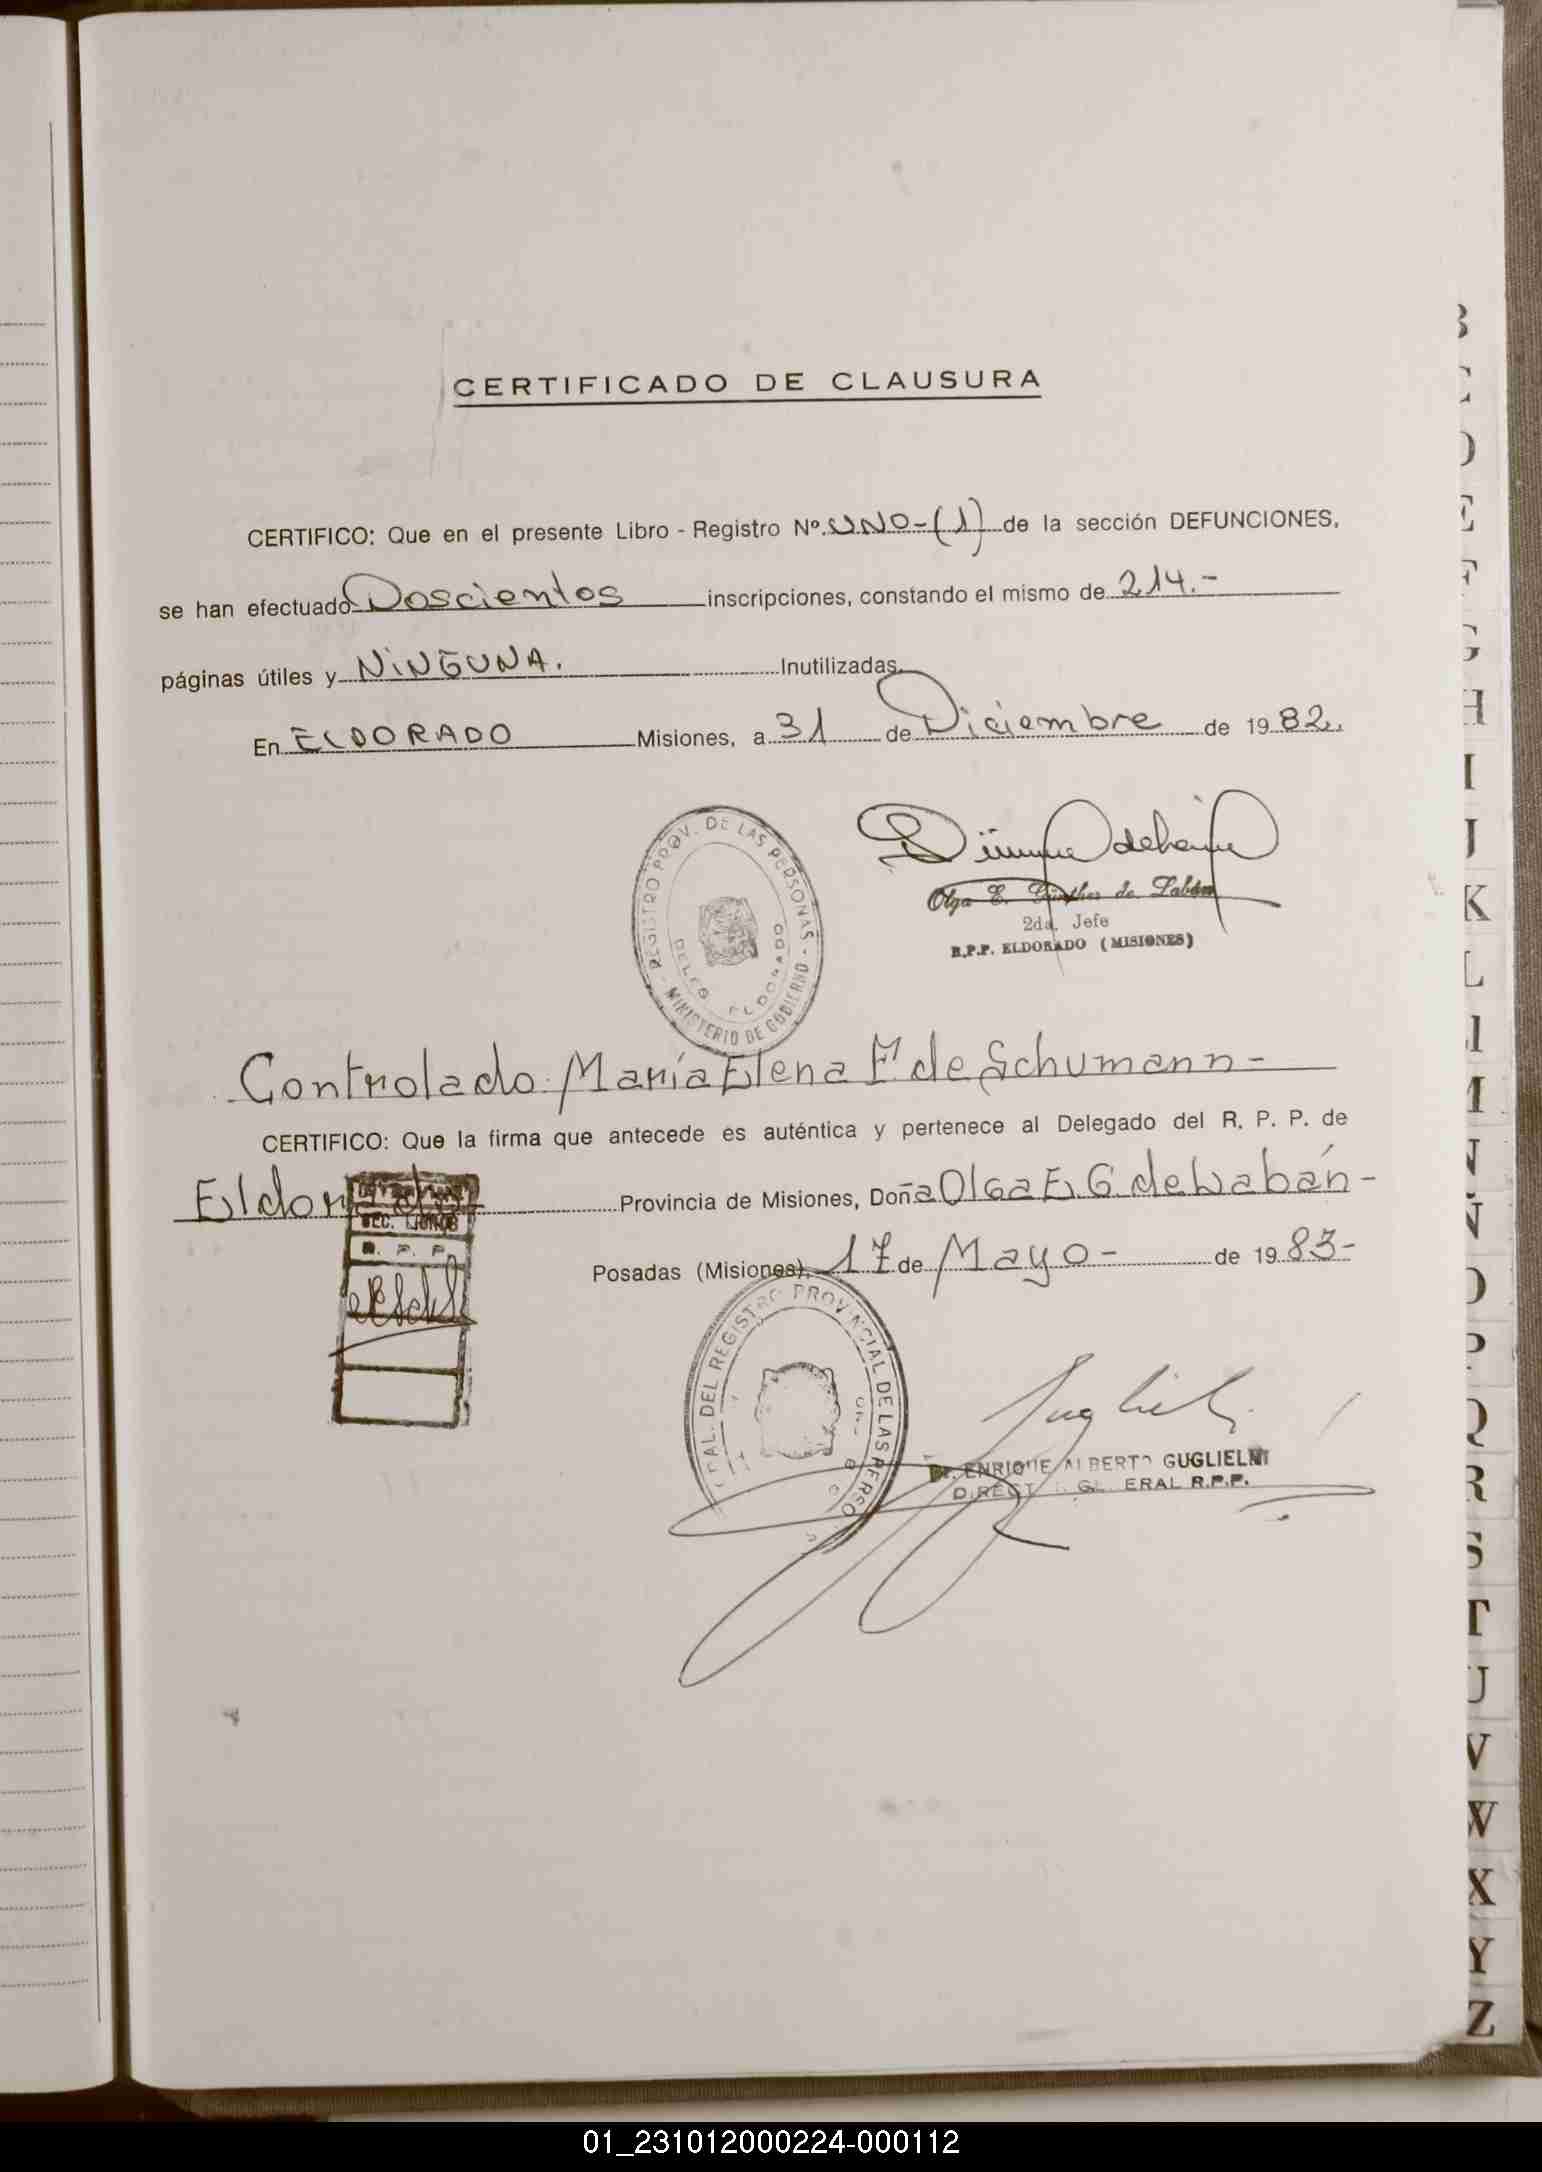 CERTIFICADO DE CLAUSURA
CERTIFICO: Que en el presente Libro - Registro Nº. UNO-(1) de la sección DEFUNCIONES,
se han efectuado Doscientos inscripciones, constando el mismo de 214.-
páginas útiles y NINGUNA. Inutilizadas.
En ELDORADO Misiones, a 31 de Diciembre de 1982.
REGISTRO PROV. DE LAS PERSONAS - MINISTERIO DE GOBIERNO -
DELEG. ELDORADO
Olga E. Günther de Labán
2da. Jefe
R.P.P. ELDORADO (MISIONES)
Controlado: María Elena F. de Schumann-
CERTIFICO: Que la firma que antecede es auténtica y pertenece al Delegado del R. P. P. de
Eldorado Provincia de Misiones, Doña Olga E. G. de Labán-
SEC. LIBROS
R. P. P.
Posadas (Misiones), 17 de Mayo- de 1983-
GRAL. DEL REGISTRO PROVINCIAL DE LAS PERSO
ENRIQUE ALBERTO GUGLIELMI
DIRECT GENERAL R.P.P.
B
C
D
E
F
G
H
I
J
K
L
M
N
Ñ
O
P
Q
R
S
T
U
V
W
X
Y
Z
01_231012000224-000112